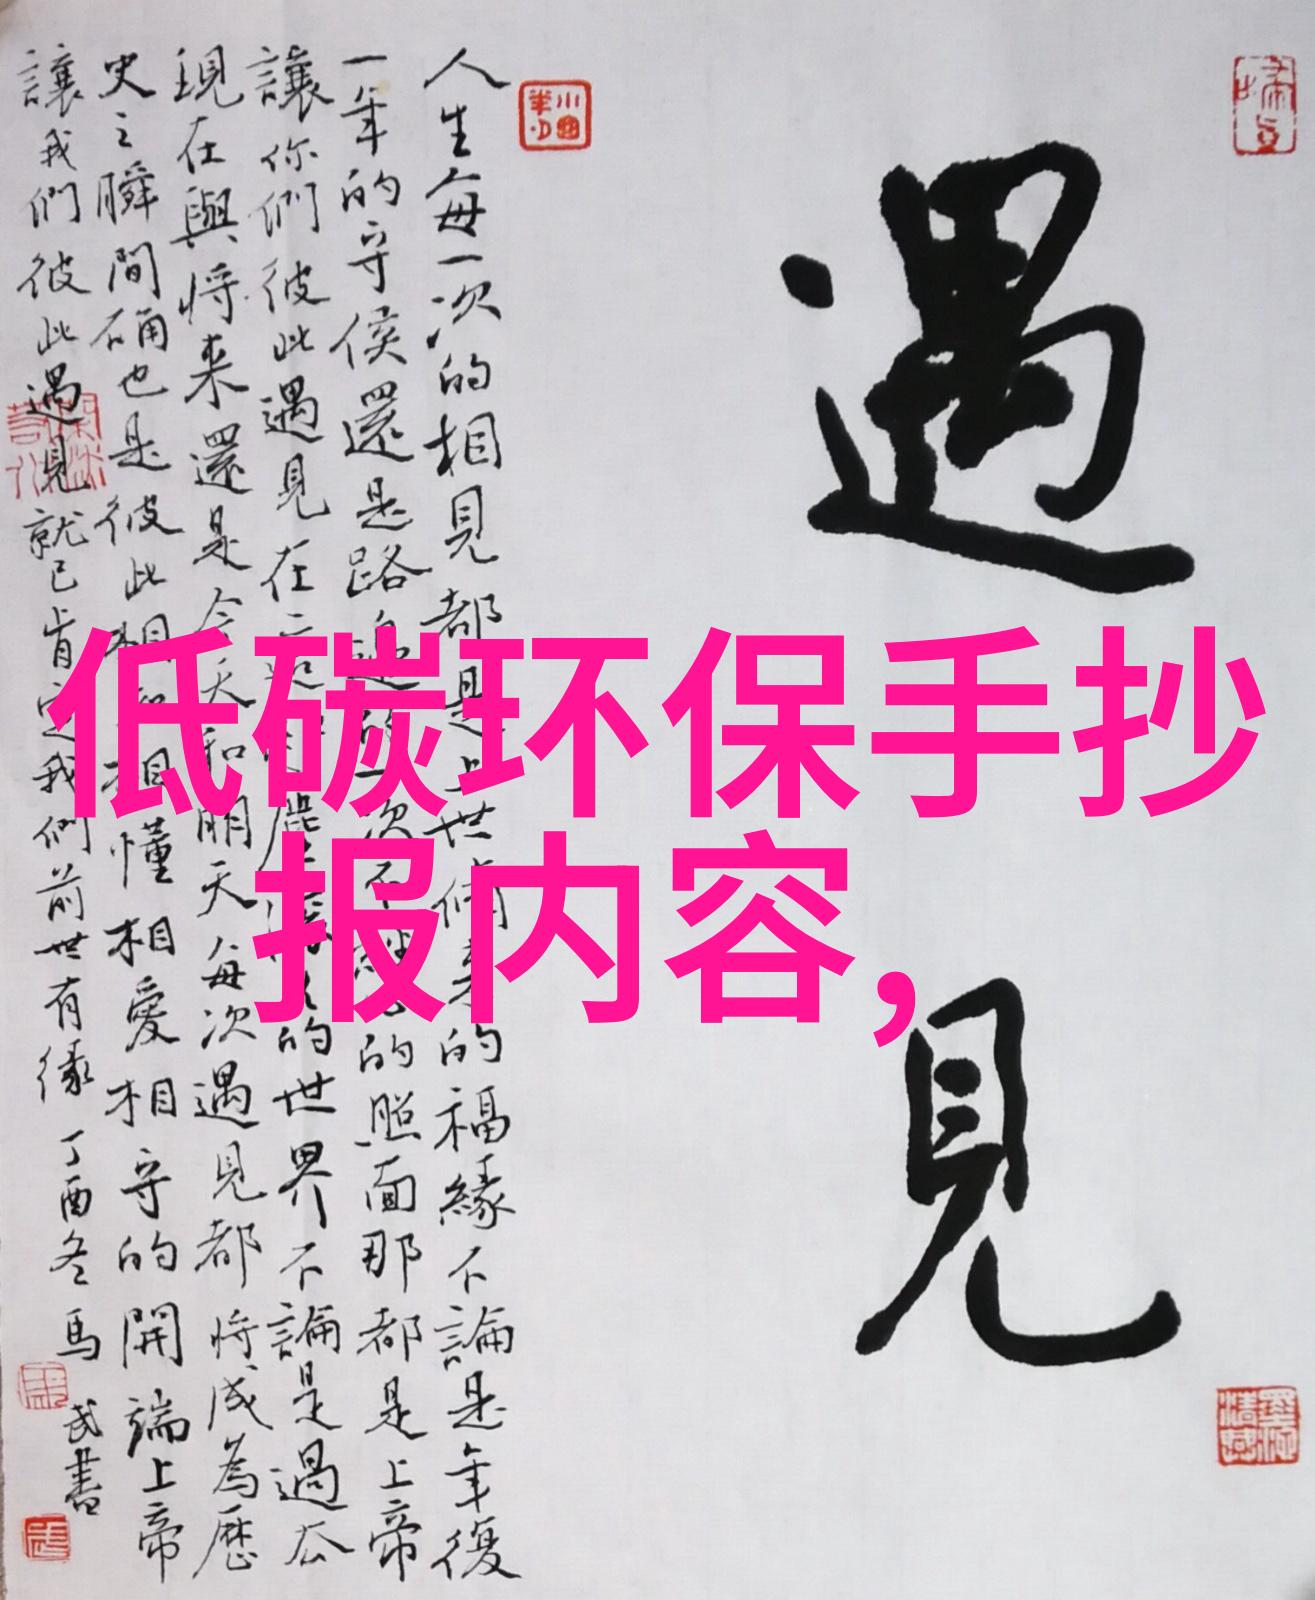 遇見
人生每一次的相見都是上世備來的福緣不論是年復
一年的守侯還是路邊的一次不經意的照面那都是上帝
讓你們彼此遇見在這 的世界不論是過去
現在與將来還是今天和明天每次遇見都将成為歷
史之瞬間確也是彼此相 相懂相愛相守的開端上帝
讓我們彼此遇見就已肯定我們前世有缘 丁酉冬馬
武書
低碳环保手抄
报内容,